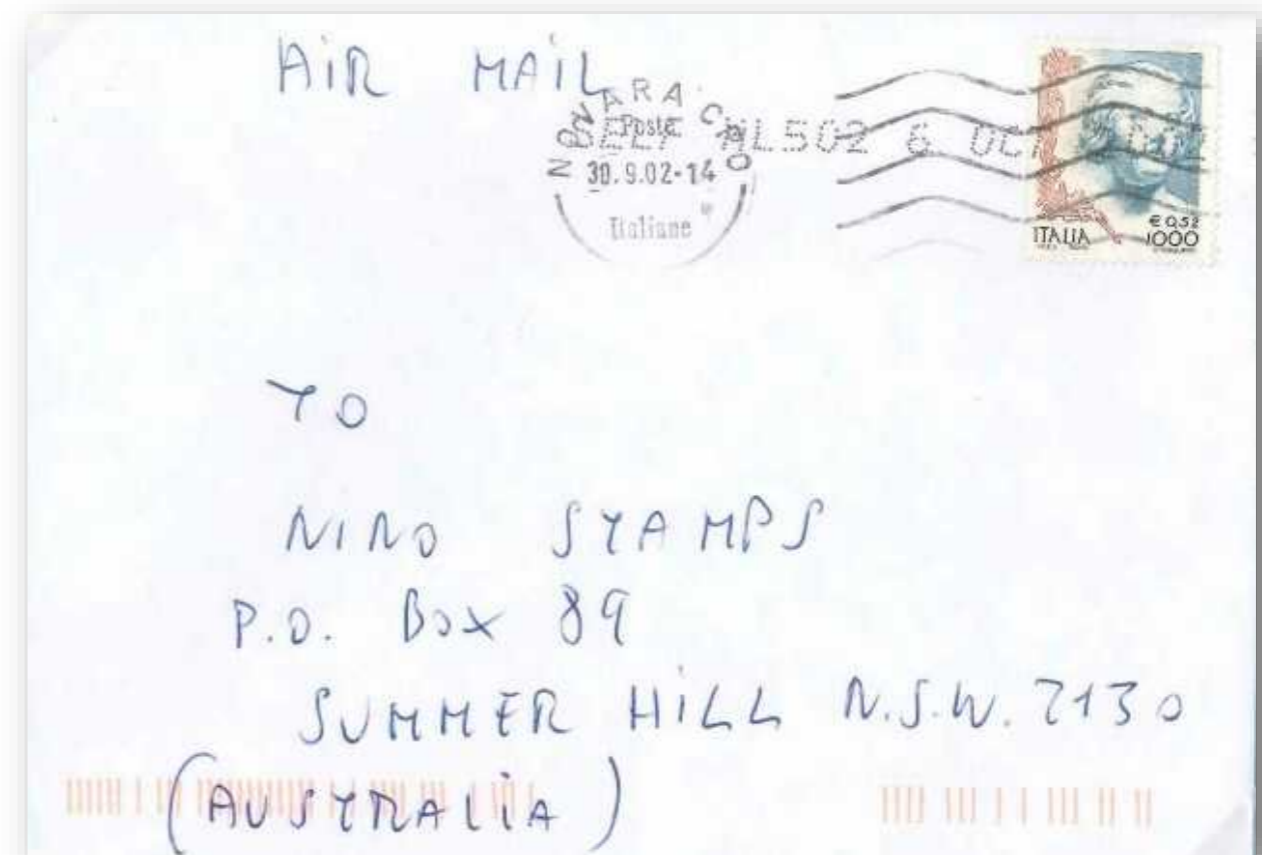 AiR MAiL
NOVARA
Poste
30.9.02-14
Italiane
ML502 6 OCT 2002
€ 0,52
ITALIA 1000
TO
NINO STAMPS
P.O. Box 89
SUMMER HiLL N.S.W. 2130
(AUSTRALiA)